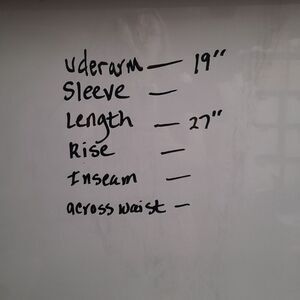 uderarm — 19"
Sleeve —
Length — 27"
Rise —
Inseam —
across waist —